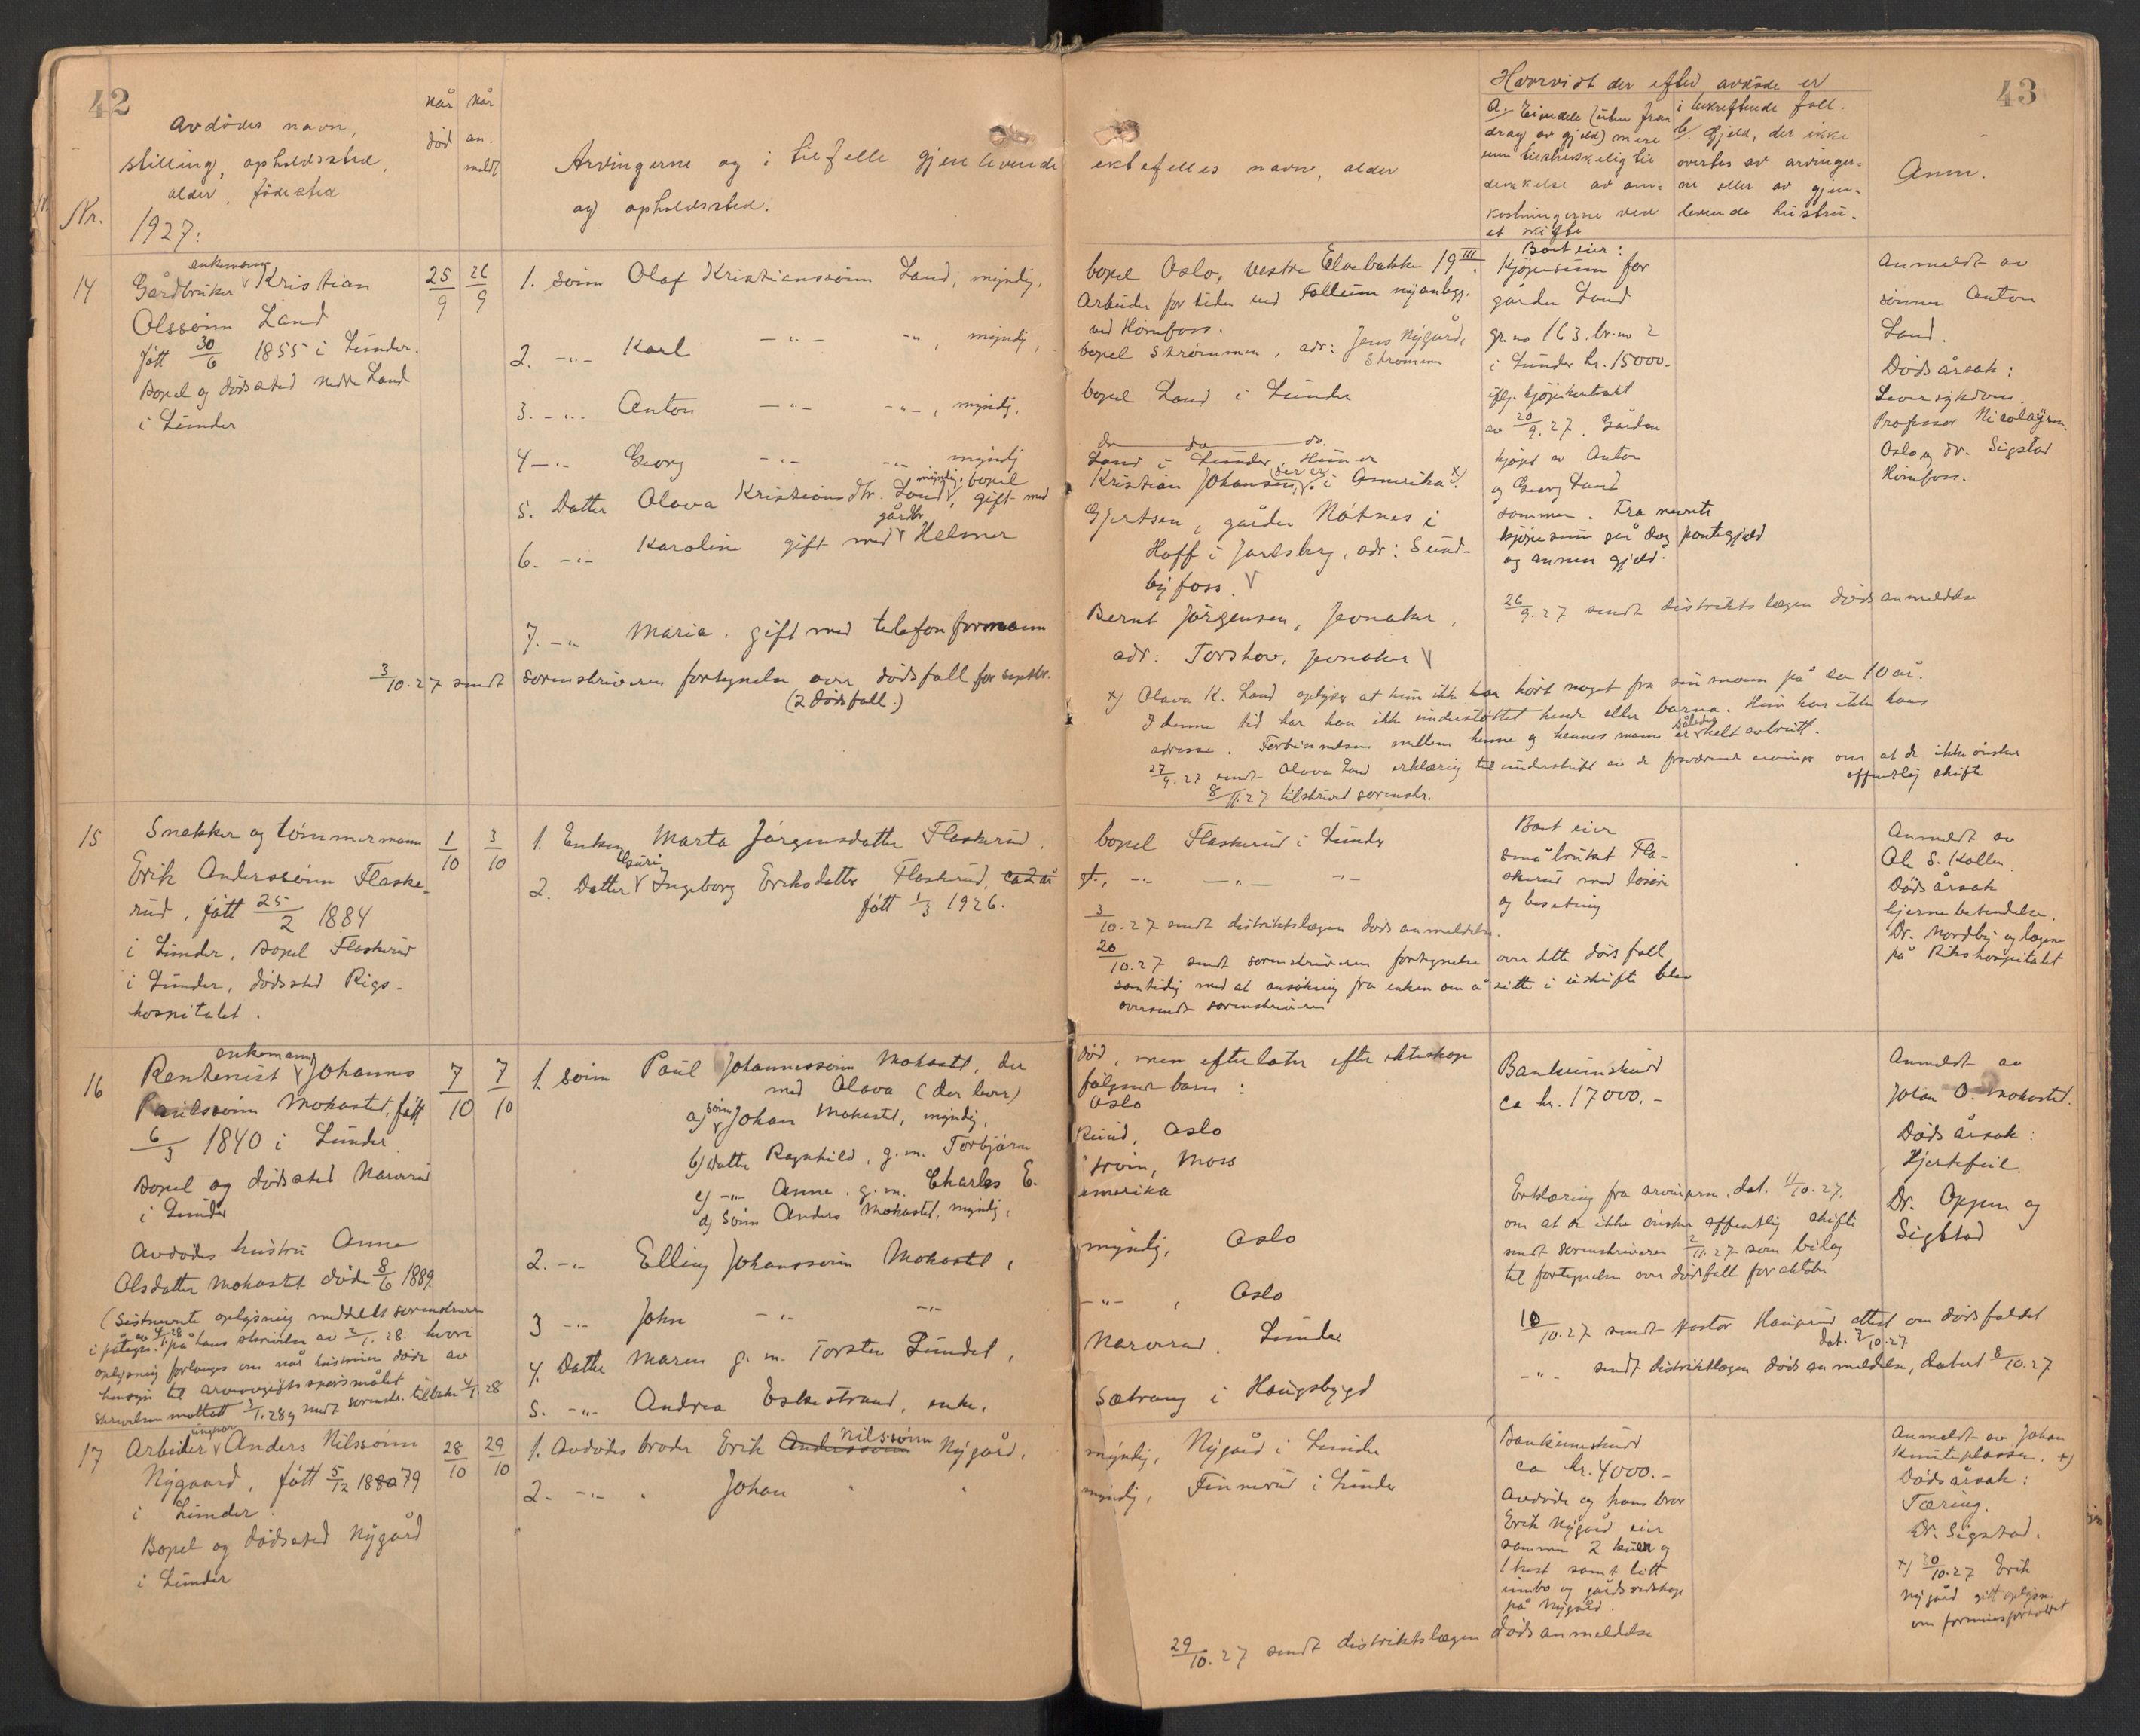 42
Nr.
Avdødes navn,
stilling, opholdssted,
alder, fødested
1927:
når
død
når
an-
meldt
Arvingerne og i tilfelle gjenlevende
og opholdssted.
14
enkemann
Gårdbruker Kristian
Olssønn Land
født 30/6 1855 i Lunder.
Bopel og dødssted nedre Land
i Lunder
25/9
26/9
1. sønn Olaf Kristianssønn Land, myndig,
2. -"- Karl -"- -"-, myndig,
3. -"- Anton -"- -"-, myndig,
4 -"- Georg -"- -"- myndig
myndig, bopel
5. Datter Olava Kristiansdtr. Land, gift med
gårdbr.
6. -"- Karoline gift med Helmer
7. -"- Maria. gift med telefonformann
3/10.27 sendt sorenskriveren fortegnelse over dødsfall for septbr.
(2 dødsfall.)
15
Snekker og tømmermann
Erik Anderssønn Flaske-
rud, født 25/2 1884
i Lunder, Bopel Flaskerud
i Lunder, dødssted Rigs-
hospitalet.
1/10
3/10
1. Enken Marta Jørgensdatter Flaskerud.
Guri
2. Datter Ingeborg Eriksdatter Flaskerud, ca 2 år
født 1/3 1926.
16
enkemann
Rentenist Johannes
Paulssønn Mokastet, født
6/3 1840 i Lunder
Bopel og dødssted Narverud
i Lunder
Avdødes hustru Anne
Olsdatter Mokastet døde 8/6 1889.
(Sistnevnte oplysning meddelt sorenskriveren
i påtegn. av 4/1.28 på hans skrivelse av 2/1.28. hvori
oplysning forlanges om når hustruen døde av
hensyn til arveavgiftsspørsmålet
Skrivelsen mottatt 3/1.28 og sendt sorenskr. tilbake 4/1.28
7/10
7/10
1. sønn Paul Johannessønn Mokastet, der
med Olava (der lever)
a) sønn Johan Mokastet, myndig,
b) datter Ragnhild, g.m. Torbjørn
c) -"- Anne. g.m. Charles E.
d) Sønn Anders Mokastet, myndig,
2. -"- Elling Johanssønn Mokastet,
3 -"- John -"- -"-
4. Datter Maren g.m. Torsten Lundet,
5. -"- Andrea Eskestrand, enke,
17
ungkar
Arbeider Anders Nilssønn
Nygaard, født 5/12 1880 79
i Lunder.
Bopel og dødssted Nygård
i Lunder
28/10
29/10
1. Avdødes broder Erik Anderssønn Nilssønn Nygård,
2. -"- Johan " "
43
ektefelles navn, alder
Hvorvidt der efter avdøde er
i bekreftende fall.
a. Eiendele (uten fra-
drag av gjeld) mere
enn tilstrekkelig til
dekkelse av om-
kostningerne ved
et skifte
b. Gjeld, der ikke
overtas av arvinger-
ne eller av gjen-
levende hustru.
Anm.
bopel Oslo, Vestre Elvebakke 19 III.
Arbeider for tiden ved Follum nyanlegg.
ved Hønefoss.
bopel Strømmen, adr: Jens Nygård,
Strømmen
bopel Land i Lunder
do do do.
Land i Lunder, Hun er
Kristian Johansen, der er i Amerika x).
Gjertsen, gården Nøtnes i
Hoff i Jarlsberg, adr: Sund-
byfoss.
Bernt Jørgensen, Jevnaker,
adr: Torshov, Jevnaker
Boet eier:
Kjøpesum for
gården Land
gr.no 163, br.no 2
i Lunder kr. 15000.-
iflg. kjøpekontrakt
av 20/9.27. Gården
kjøpt av Anton
og Georg Land
sammen. Fra nevnte
kjøpesum går dog pantegjeld
og annen gjeld.
26/9.27 sendt distriktslægen dødsanmeldelse
x) Olava K. Land oplyser at hun ikke har hørt noget fra sin mann på ca 10 år.
I denne tid har han ikke understøttet hende eller barna. Hun har ikke hans
adresse. Forbindelsen mellem henne og hennes mann er således helt avbrutt.
27/9.27 sendt Olava Land erklæring til underskrift av de fraværende arvinger om at de ikke ønsker
offentlig skifte
8/11.27 tilskrevet sorenskr.
Anmeldt av
sønnen Anton
Land.
Dødsårsak:
Leversykdom.
Professor Nicolaysen.
Oslo og dr. Sigstad
Hønefoss.
bopel Flaskerud i Lunder
st., -"- -"- -"-
3/10.27 sendt distriktslægen dødsanmeldelse.
20/10.27 sendt sorenskriveren fortegnelse over dette dødsfall
samtidig med at ansøkning fra enken om å sitte i uskifte blev
oversendt sorenskriveren
Boet eier
småbruket Fla-
skerud med løsøre
og besetning
Anmeldt av
Ole S. Kollen
Dødsårsak
hjernebetendelse.
Dr. Nordby og lægene
på Rikshospitalet
død, men efterlater efter ekteskap
følgende barn:
Oslo
Ruud, Oslo
Moss
Amerika
myndig, Oslo
-"-, Oslo
Narverud, Lunder
Sætrang i Haugsbygd
Bankinnskudd
ca kr. 17000.-
Erklæring fra arvingerne, dat. 11/10.27.
om at de ikke ønsker offentlig skifte
sendt sorenskriveren 2/11.27 som bilag
til fortegnelse over dødsfall for oktober
10/10.27 sendt pastor Haugerud attest om dødsfaldet
dat. 7/10.27
-"- sendt distriktslægen dødsanmeldelse, datert 8/10.27
Anmeldt av
Johan O. Mokastet.
Dødsårsak:
Hjertefeil.
Dr. Oppen og
Sigstad
myndig, Nygård i Lunder
myndig, Finnerud i Lunder
Bankinnskudd
ca kr. 4000.-
Avdøde og hans bror
Erik Nygård eier
sammen 2 kuer og
1 hest samt litt
innbo og gårdsredskap
på Nygård.
29/10.27 sendt distriktslægen dødsanmeldelse
Anmeldt av Johan
Knuteplassen. x)
Dødsårsak:
Tæring.
Dr. Sigstad.
x) 20/10.27 Erik
Nygård gitt oplysn.
om formuesforholdet